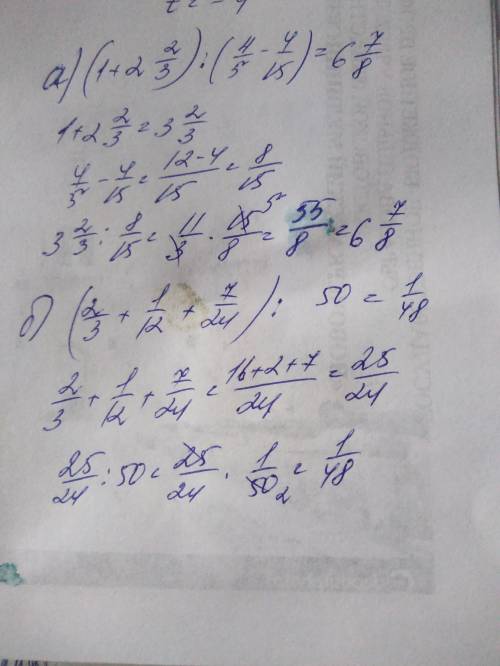 а) (1+2 2/3) : (4/5 - 4/15) = 6 7/8
1+2 2/3 = 3 2/3
4/5 - 4/15 = (12-4)/15 = 8/15
3 2/3 : 8/15 = 11/3 · 15⁵/8 = 55/8 = 6 7/8
б) (2/3 + 1/12 + 7/24) : 50 = 1/48
2/3 + 1/12 + 7/24 = (16+2+7)/24 = 25/24
25/24 : 50 = 25/24 · 1/50₂ = 1/48